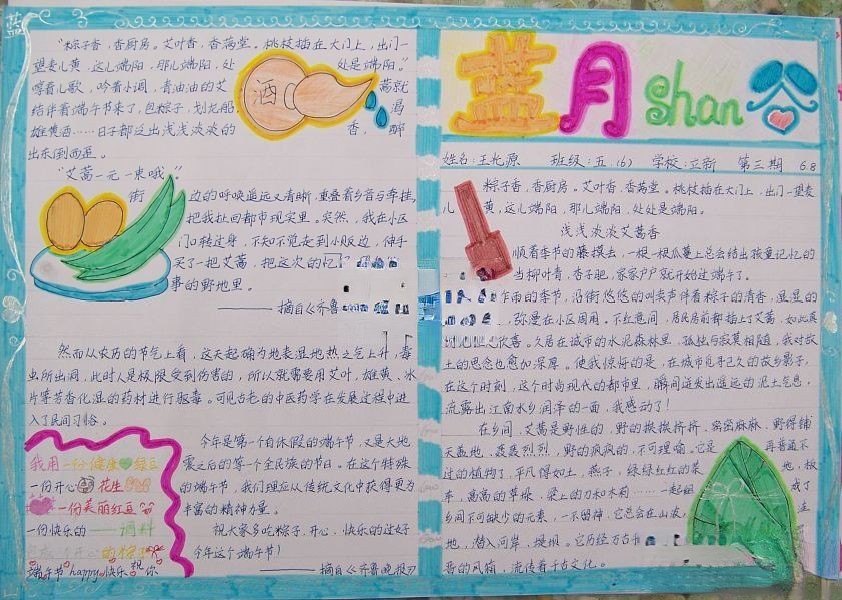 “粽子香,香厨房。艾叶香,香满堂。桃枝插在大门上,出门一
望麦儿黄,这儿端阳,那儿端阳,处处是端阳。”
哼着儿歌,吟着小调,青油油的艾蒿就
结伴着端午节来了,包粽子,划龙船,喝
雄黄酒……日子都这出浅浅浓浓的香,
出东倒西歪。
酒
“艾蒿一元一束哦。”
街边的呼唤遥远又清晰,重叠着乡音与牵挂,
把我扯回都市现实里。突然,我在小区
门口转过身,不知不觉走到小贩边,伸手
买了一把艾蒿,把这次的
事的野地里。
——摘自《齐鲁
然而从农历的节气上看,这天起确为地表湿地热之气上升,毒
虫所出洞,此时人是极限受到伤害的,所以就需要用艾叶,雄黄,冰
片等芳香化湿的药材进行驱毒。可见古老的中医药学在发展过程中进
入了民间习俗。
今年是第一个自休假的端午节,又是大地
震之后的第一个全民族的节日。在这个特殊
的端午节,我们理应从传统文化中获得更为
丰富的精神力量。
祝大家多吃粽子,开心、快乐的过好
今年这个端午节!
——摘自《齐鲁晚报》
我用一份健康绿豆
一份开心花生
一份美丽红豆
一份快乐的——调料
开心的粽
端午节happy快乐祝你
蓝月shan谷
姓名:王礼源 班级:五(6) 学校:立新 第三期 6.8
粽子香,香厨房。艾叶香,香满堂。桃枝插在大门上,出门一望麦
儿黄,这儿端阳,那儿端阳,处处是端阳。
浅浅浓浓艾蒿香
顺着季节的藤摸去,一根一根瓜蔓上总会结出孩童记忆的
当柳叶青,杏子肥,家家户户就开始过端午了。
作雨的季节,沿街悠悠的叫卖声伴着粽子的清香,显显的
弥漫在小区周围。不经意间,居民房前都插上了艾蒿,如此真
欣喜。久居在城市的水泥森林里,孤独与寂寞相随,我对故
土的思念也愈加深厚。使我惊讶的是,在城市觅寻已久的故乡影子,
在这个时刻,这个时尚现代的都市里,瞬间迸发出遥远的泥土气息,
流露出江南水乡润泽的一面,我感动了!
在乡间,艾蒿是野性的,野的挨挨挤挤、窝窝麻麻,野得铺
天盖地,轰轰烈烈,野的疯疯的,不可理喻。它是再普通不
过的植物了,平凡得如土,燕子,绿绿红红的菜地,板
车,高高的草垛,梁上的刀和木莉……一起组成了
乡间不可缺少的元素,一不留神,它总会在山坡、洼
地,潜入河岸、堤坝。它历经万古
香的风箱,流传着千古文化。